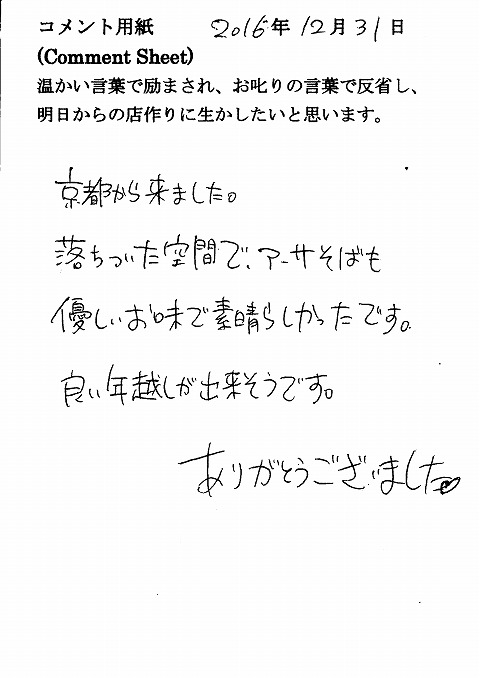 コメント用紙　2016年12月31日
(Comment Sheet)
温かい言葉で励まされ、お叱りの言葉で反省し、
明日からの店作りに生かしたいと思います。
京都から来ました。
落ちついた空間で、アーサそばも
優しいお味で素晴らしかったです。
良い年越しが出来そうです。
ありがとうございました♡